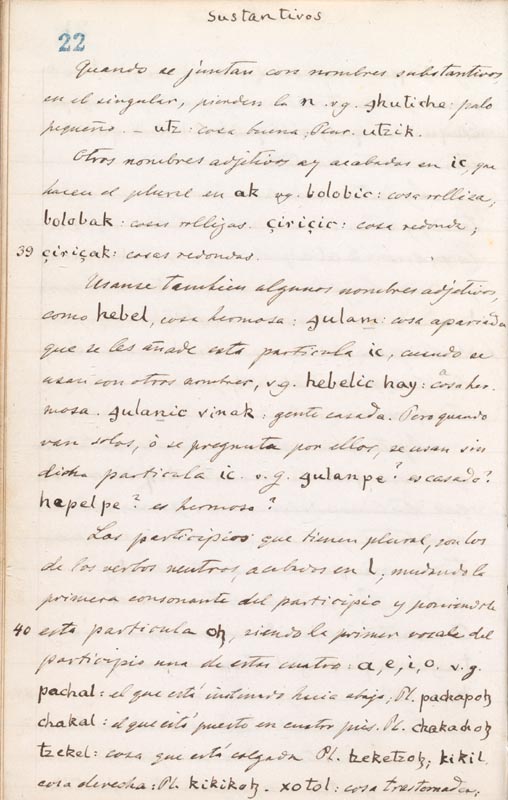 Sustantivos
22
Quando se juntan con nombres substantivos,
en el singular, pierden la n. v.g. ghutiche: palo
pequeño. – utz: cosa buena; Plur. utzik.
Otros nombres adjetivos ay acabados en ic, que
hacen el plural en ak v.g. bolobic: cosa rolliza;
bolobak: cosas rollizas. çiriçic: cosa redonda;
39 çiriçak: cosas redondas.
Usanse tambien algunos nombres adjetivos,
como hebel, cosa hermosa: gulam: cosa apariada
que se les añade esta particula ic, cuando se
usan con otros nombres, v.g. hebelic hay: cosa her-
mosa. gulanic vinak: gente casada. Pero quando
van solos, ò se pregnuta por ellos, se usan sin
dicha particula ic. v.g. gulanpe? es casado?
hepelpe? es hermoso?
Los participios que tienen plural, son los
de los verbos neutros, acabados en l, mudando la
primera consonante del participio y poniendole
40 esta particula oꜩ, siendo la primer vocale del
participio una de estas cuatro: a, e, i, o. v.g.
pachal: el que está hacia abajo; Pl. pachapoꜩ
chakal: el que está puesto en cuatro pies. Pl. chakachoꜩ
tzekel: cosa que está colgada Pl. tzeketzoꜩ; kikil
cosa derecha: Pl. kikikoꜩ. xotol: cosa trastornada;